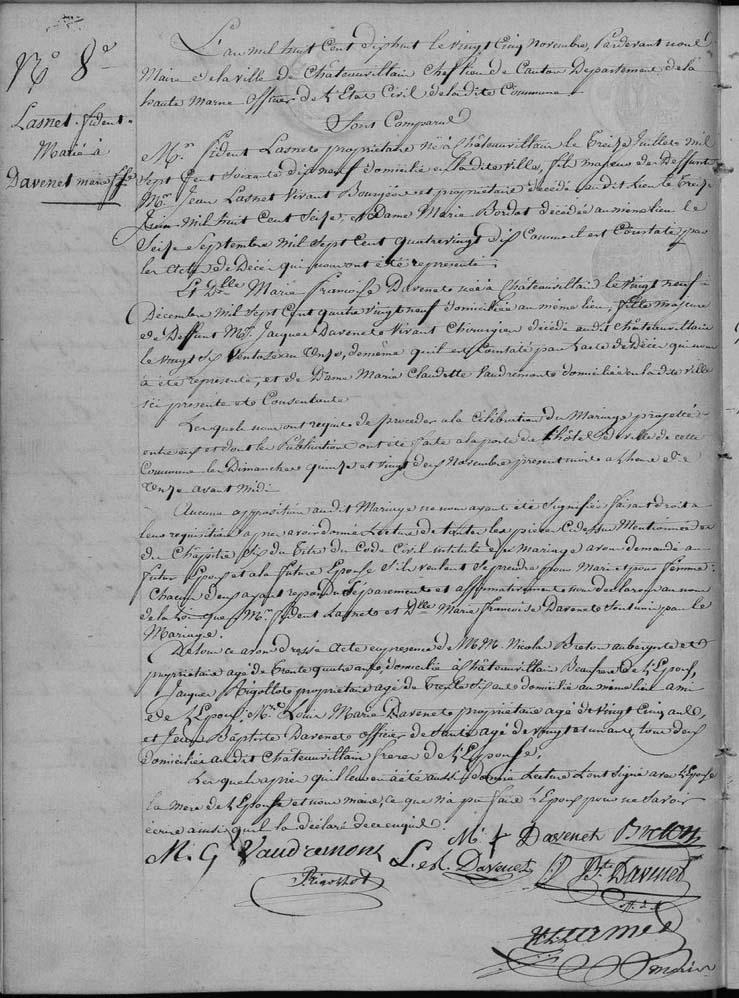 N.° 8.e
Lasnet fident
Marié à
Davenet marie f.se
L'an mil huit Cent dix huit le vingt Cinq novembre, Pardevant nous
Maire de la ville de Châteauvillain Chef lieu de Canton Departement de la
haute Marne Officier de l'Etat Civil de la dite Commune
Sont Comparus
M.r fident Lasnet propriétaire né à Châteauvillain le treize Juillet mil
Sept Cent Soixante dix neuf domicilié en la dite ville, fils majeur de Deffunt
M.r Jean Lasnet vivant Bourgeois et propriétaire décédé au dit lieu le treize
Juin mil huit Cent Seize, et Dame Marie Bordat décédée au même lieu le
Seize Septembre mil Sept Cent quatre vingt dix Comme il est Constaté par
les actes de Décès qui nous ont été représentés;
Et D.lle Marie françoise Davenet née à Châteauvillain le vingt neuf
Décembre mil Sept Cent quatre vingt neuf domiciliée au même lieu, fille majeure
de Deffunt M.r Jacques Davenet vivant Chirurgien décédé au dit Châteauvillain
le vingt Six Ventose an Onze, de même qu'il est Constaté par l'acte de Décès qui nous
à été représenté, et de Dame Marie Claudette Vaudremont domiciliée en la dite ville
ici présente et Consentante
Lesquels nous ont requis de proceder à la Célébration du Mariage projetté
entre eux et dont les Publications ont été faite a la porte de l'hôtel de ville de cette
Commune les Dimanches quinze et vingt deux Novembre present mois a l'heure de
Onze avant Midi
Aucune opposition au dit Mariage ne nous ayant été Signifiée faisant droit a
leur requisition apres avoir donné Lecture de toutes les pieces Cidessus Mentionnées et
du Chapitre Six du Titre du Code Civil intitulé du Mariage avons demandé au
futur Epoux et a la future Epouse S'ils veulent Se prendre pour Mari et pour femme:
Chacun d'eux ayant repondu Séparement et affirmativement nous declarons au nom
de la Loi que M.r fident Lasnet et D.lle Marie francoise Davenet Sont unis par le
Mariage.
De tout ce avons dressé Acte en presence de M.M. Nicolas Breton aubergiste et
propriétaire agé de trente quatre ans, domicilié à Châteauvillain Beaufrere de l'Epoux,
Jacques Rigollot propriétaire agé de trente Six ans domicilié au même lieu ami
de l'Epoux, M.r Louis Marie Davenet propriétaire agé de vingt Cinq ans,
et Jean Baptiste Davenet officier de Santé agé de vingt et un ans tous deux
domiciliés au dit Chateauvillain freres de l'Epouse,
Lesquels après qu'il leur en à été aussi donné Lecture l'ont Signé avec l'Epouse
la Mere de l'Epouse et nous maire, ce que n'a pu faire l'Epoux pour ne Savoir
écrire ainsi qu'il la déclaré de ce enquis.
M. f Davenet Breton
M. C Vaudremont L. M. Davenet J. B.te Davenet
Rigollot off. de s.
maire